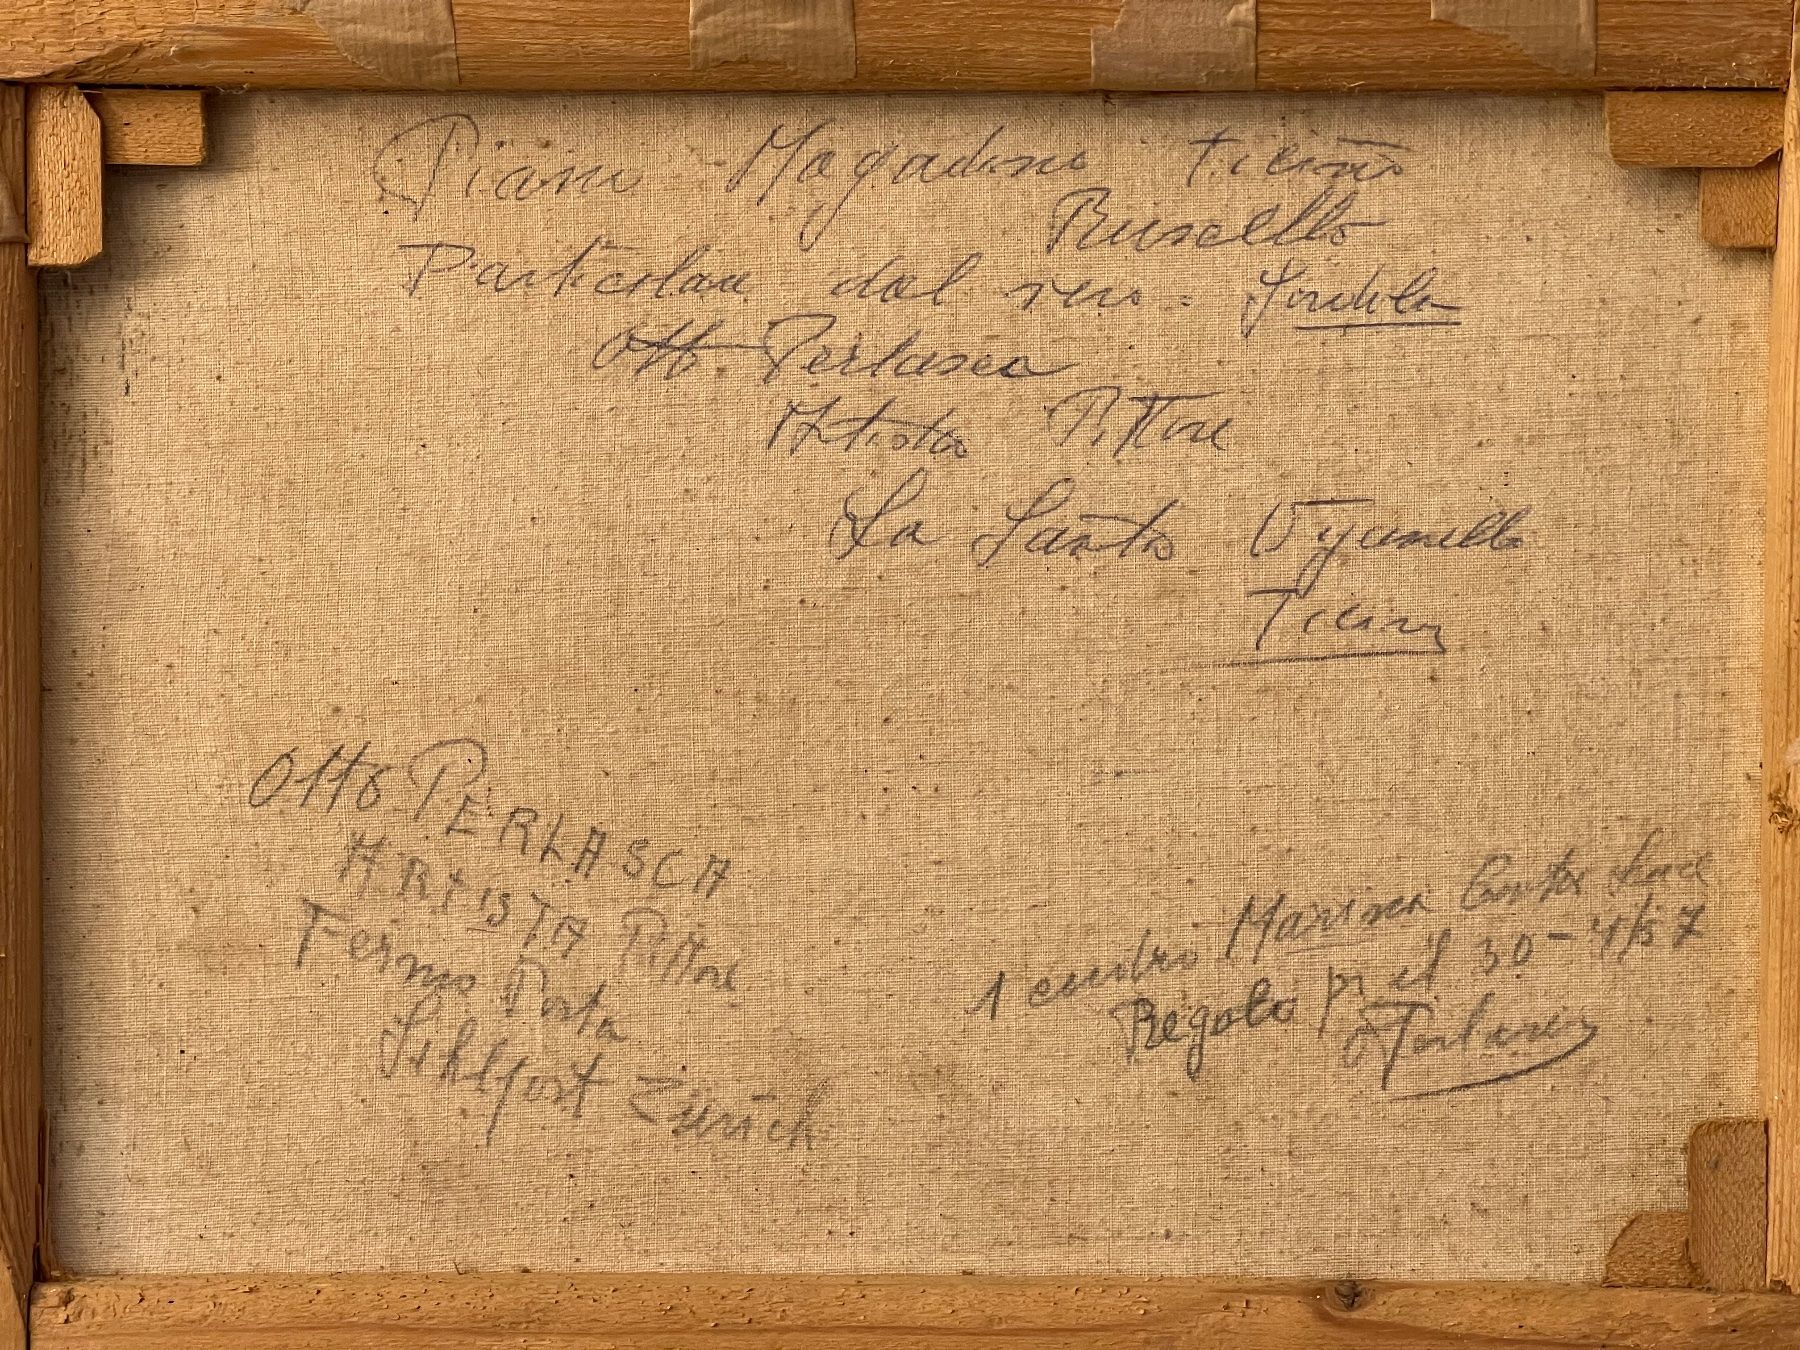 Piano Magadino Ticino
Ruscello
Particolare dal vero.
Otto Perlasca
Artista Pittore
La Santa Viganello
Ticino
Otto PERLASCA
ARTISTA Pittore
Fermo Posta
Sihlpost Zürich
1 quadro Marina
Regalo il 30-4/57
O Perlasca